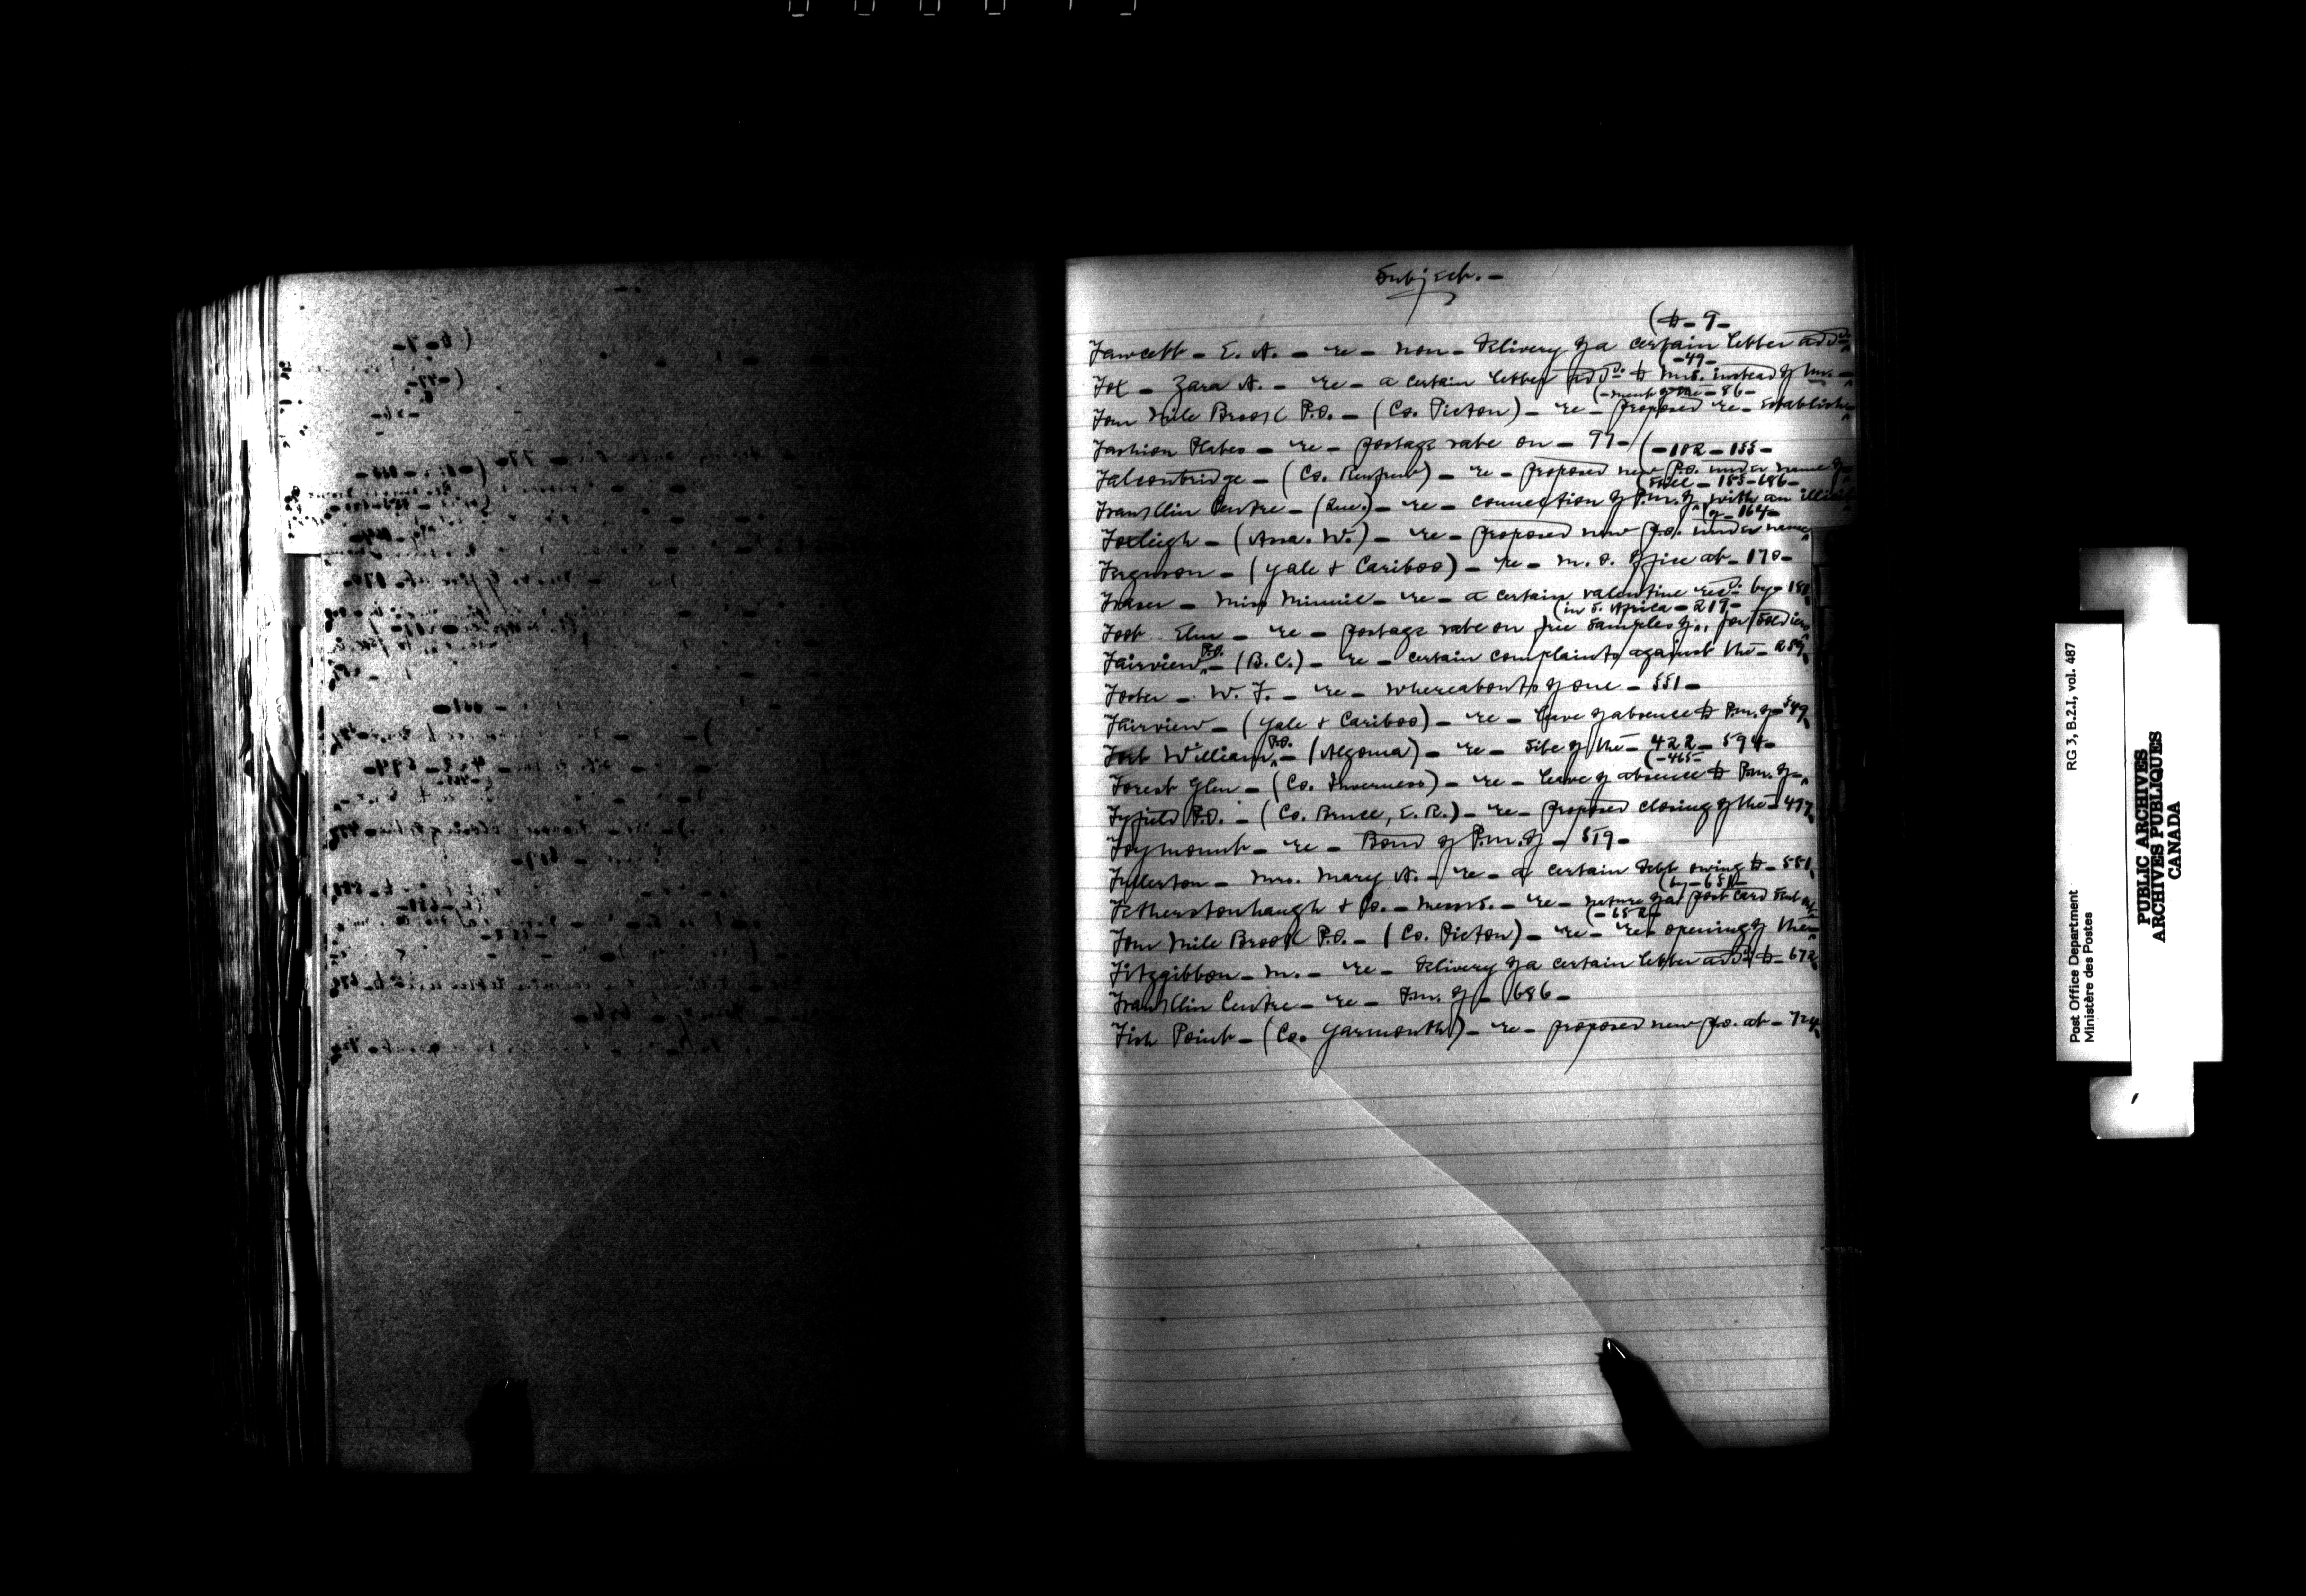 Subject. -
(to - 9 -
Fawcett - E. A. - re - non - delivery of a certain letter add'd.
(- 49 -
Fox - Zara A. - re - a certain letter add'd. to Mrs. instead of Mr. -
(- ment of the - 86 -
Four Mile Brook P.O. - (Co. Pictou) - re - proposed re - establish
Fashion Plates - re - postage rate on - 97 -
(- 102 - 155 -
Falconbridge - (Co. Renfrew) - re - proposed new P.O. under name of
(still - 155 - 686 -
Franklin Centre - (Que.) - re - connection of P.M. of, with an illicit
(of - 164 -
Foxleigh - (Assa. W.) - re - proposed new p.o. under name
Ferguson - (Yale & Cariboo) - re - M. O. Office at - 170 -
Fraser - Miss Minnie - re - a certain valentine rec'd. by - 181
(in S. Africa - 219 -
Foot Elm - re - postage rate on free samples of, for soldiers
Fairview P.O. - (B.C.) - re - certain complaints against the - 259
Foster - W. F. - re - whereabouts of one - 551 -
Fairview - (Yale & Cariboo) - re - leave of absence to P.M. of - 549
Fort William P.O. - (Algoma) - re - site of the - 422 - 594 -
(- 465 -
Forest Glen - (Co. Inverness) - re - leave of absence to P.M. of -
Fyfield P.O. - (Co. Bruce, E. R.) - re - proposed closing of the - 497
Foymount - re - Bond of P.M. of - 519 -
Fullerton - Mrs. Mary A. - re - a certain debt owing to - 551
(by - 651 -
Fetherstonhaugh & Co. - Messrs. - re - nature of a post card sent out
(- 652 -
Four Mile Brook P.O. - (Co. Pictou) - re - re - opening of the
Fitzgibbon - M. - re - delivery of a certain letter add'd. to - 672
Franklin Centre - re - P.M. of - 686 -
Fish Point - (Co. Yarmouth) - re - proposed new p.o. at - 724
RG 3, B.2.I, vol. 487
Post Office Department
Ministère des Postes
PUBLIC ARCHIVES
ARCHIVES PUBLIQUES
CANADA